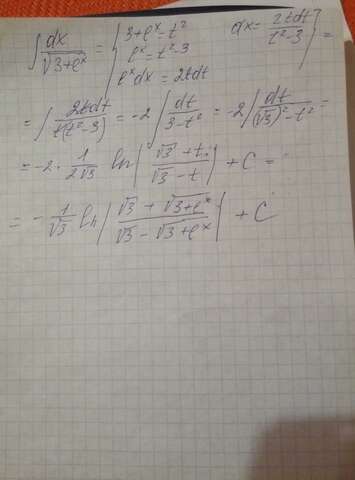 ∫ dx/√(3+eˣ) = { 3+eˣ=t² dx = 2tdt/(t²-3) } =
eˣ=t²-3
eˣdx = 2tdt
= ∫ 2tdt/(t(t²-3)) = -2 ∫ dt/(3-t²) = -2 ∫ dt/((√3)²-t²) =
= -2 · 1/(2√3) ln|(√3+t)/(√3-t)| + C =
= -1/√3 ln|(√3+√(3+eˣ))/(√3-√(3+eˣ))| + C